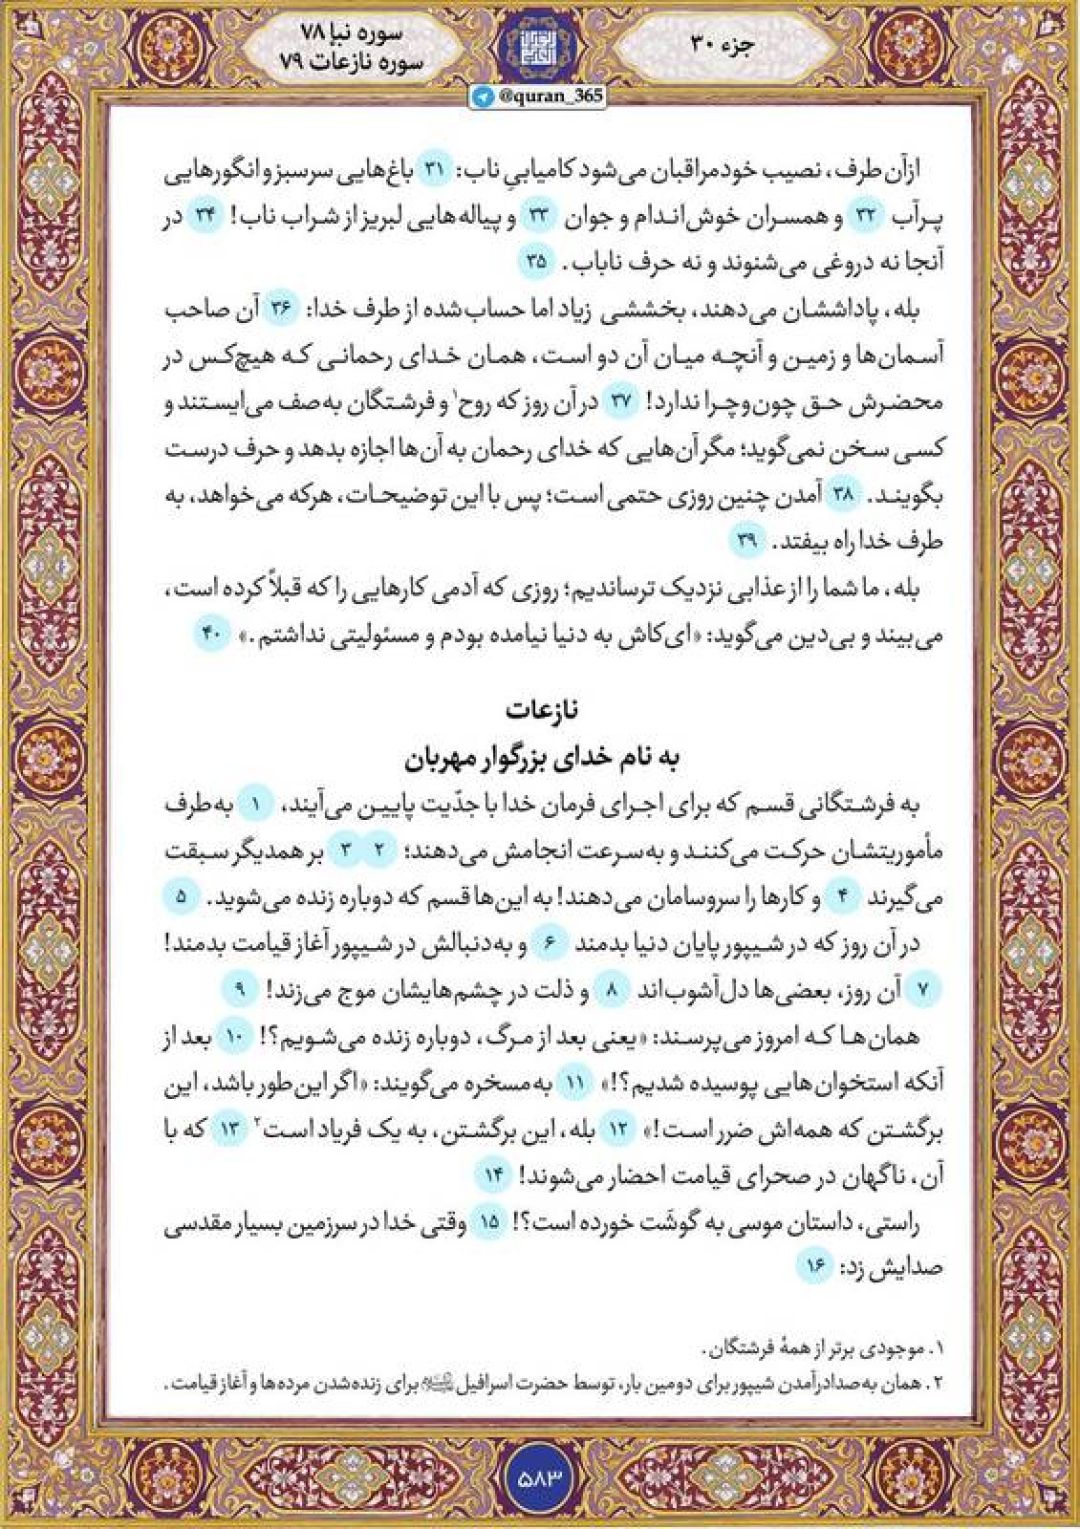 جزء ۳۰
سوره نبإ ۷۸
سوره نازعات ۷۹
@quran_365
ازآن طرف، نصیب خودمراقبان می‌شود کامیابیِ ناب: ۳۱ باغ‌هایی سرسبز و انگورهایی
پرآب ۳۲ و همسران خوش‌اندام و جوان ۳۳ و پیاله‌هایی لبریز از شراب ناب! ۳۴ در
آنجا نه دروغی می‌شنوند و نه حرف ناباب. ۳۵
بله، پاداششان می‌دهند، بخششی زیاد اما حساب‌شده از طرف خدا: ۳۶ آن صاحب
آسمان‌ها و زمین و آنچه میان آن دو است، همان خدای رحمانی که هیچ‌کس در
محضرش حق چون‌وچرا ندارد! ۳۷ در آن روز که روح۱ و فرشتگان به‌صف می‌ایستند و
کسی سخن نمی‌گوید؛ مگر آن‌هایی که خدای رحمان به آن‌ها اجازه بدهد و حرف درست
بگویند. ۳۸ آمدن چنین روزی حتمی است؛ پس با این توضیحات، هرکه می‌خواهد، به
طرف خدا راه بیفتد. ۳۹
بله، ما شما را از عذابی نزدیک ترساندیم؛ روزی که آدمی کارهایی را که قبلاً کرده است،
می‌بیند و بی‌دین می‌گوید: «ای‌کاش به دنیا نیامده بودم و مسئولیتی نداشتم.» ۴۰
نازعات
به نام خدای بزرگوار مهربان
به فرشتگانی قسم که برای اجرای فرمان خدا با جدّیت پایین می‌آیند، ۱ به‌طرف
مأموریتشان حرکت می‌کنند و به‌سرعت انجامش می‌دهند؛ ۲ ۳ بر همدیگر سبقت
می‌گیرند ۴ و کارها را سروسامان می‌دهند! به این‌ها قسم که دوباره زنده می‌شوید. ۵
در آن روز که در شیپور پایان دنیا بدمند ۶ و به‌دنبالش در شیپور آغاز قیامت بدمند!
۷ آن روز، بعضی‌ها دل‌آشوب‌اند ۸ و ذلت در چشم‌هایشان موج می‌زند! ۹
همان‌ها که امروز می‌پرسند: «یعنی بعد از مرگ، دوباره زنده می‌شویم؟! ۱۰ بعد از
آنکه استخوان‌هایی پوسیده شدیم؟!» ۱۱ به‌مسخره می‌گویند: «اگر این‌طور باشد، این
برگشتن که همه‌اش ضرر است!» ۱۲ بله، این برگشتن، به یک فریاد است۲ ۱۳ که با
آن، ناگهان در صحرای قیامت احضار می‌شوند! ۱۴
راستی، داستان موسی به گوشَت خورده است؟! ۱۵ وقتی خدا در سرزمین بسیار مقدسی
صدایش زد: ۱۶
۱. موجودی برتر از همهٔ فرشتگان.
۲. همان به‌صدادرآمدن شیپور برای دومین بار، توسط حضرت اسرافیل برای زنده‌شدن مرده‌ها و آغاز قیامت.
۵۸۳